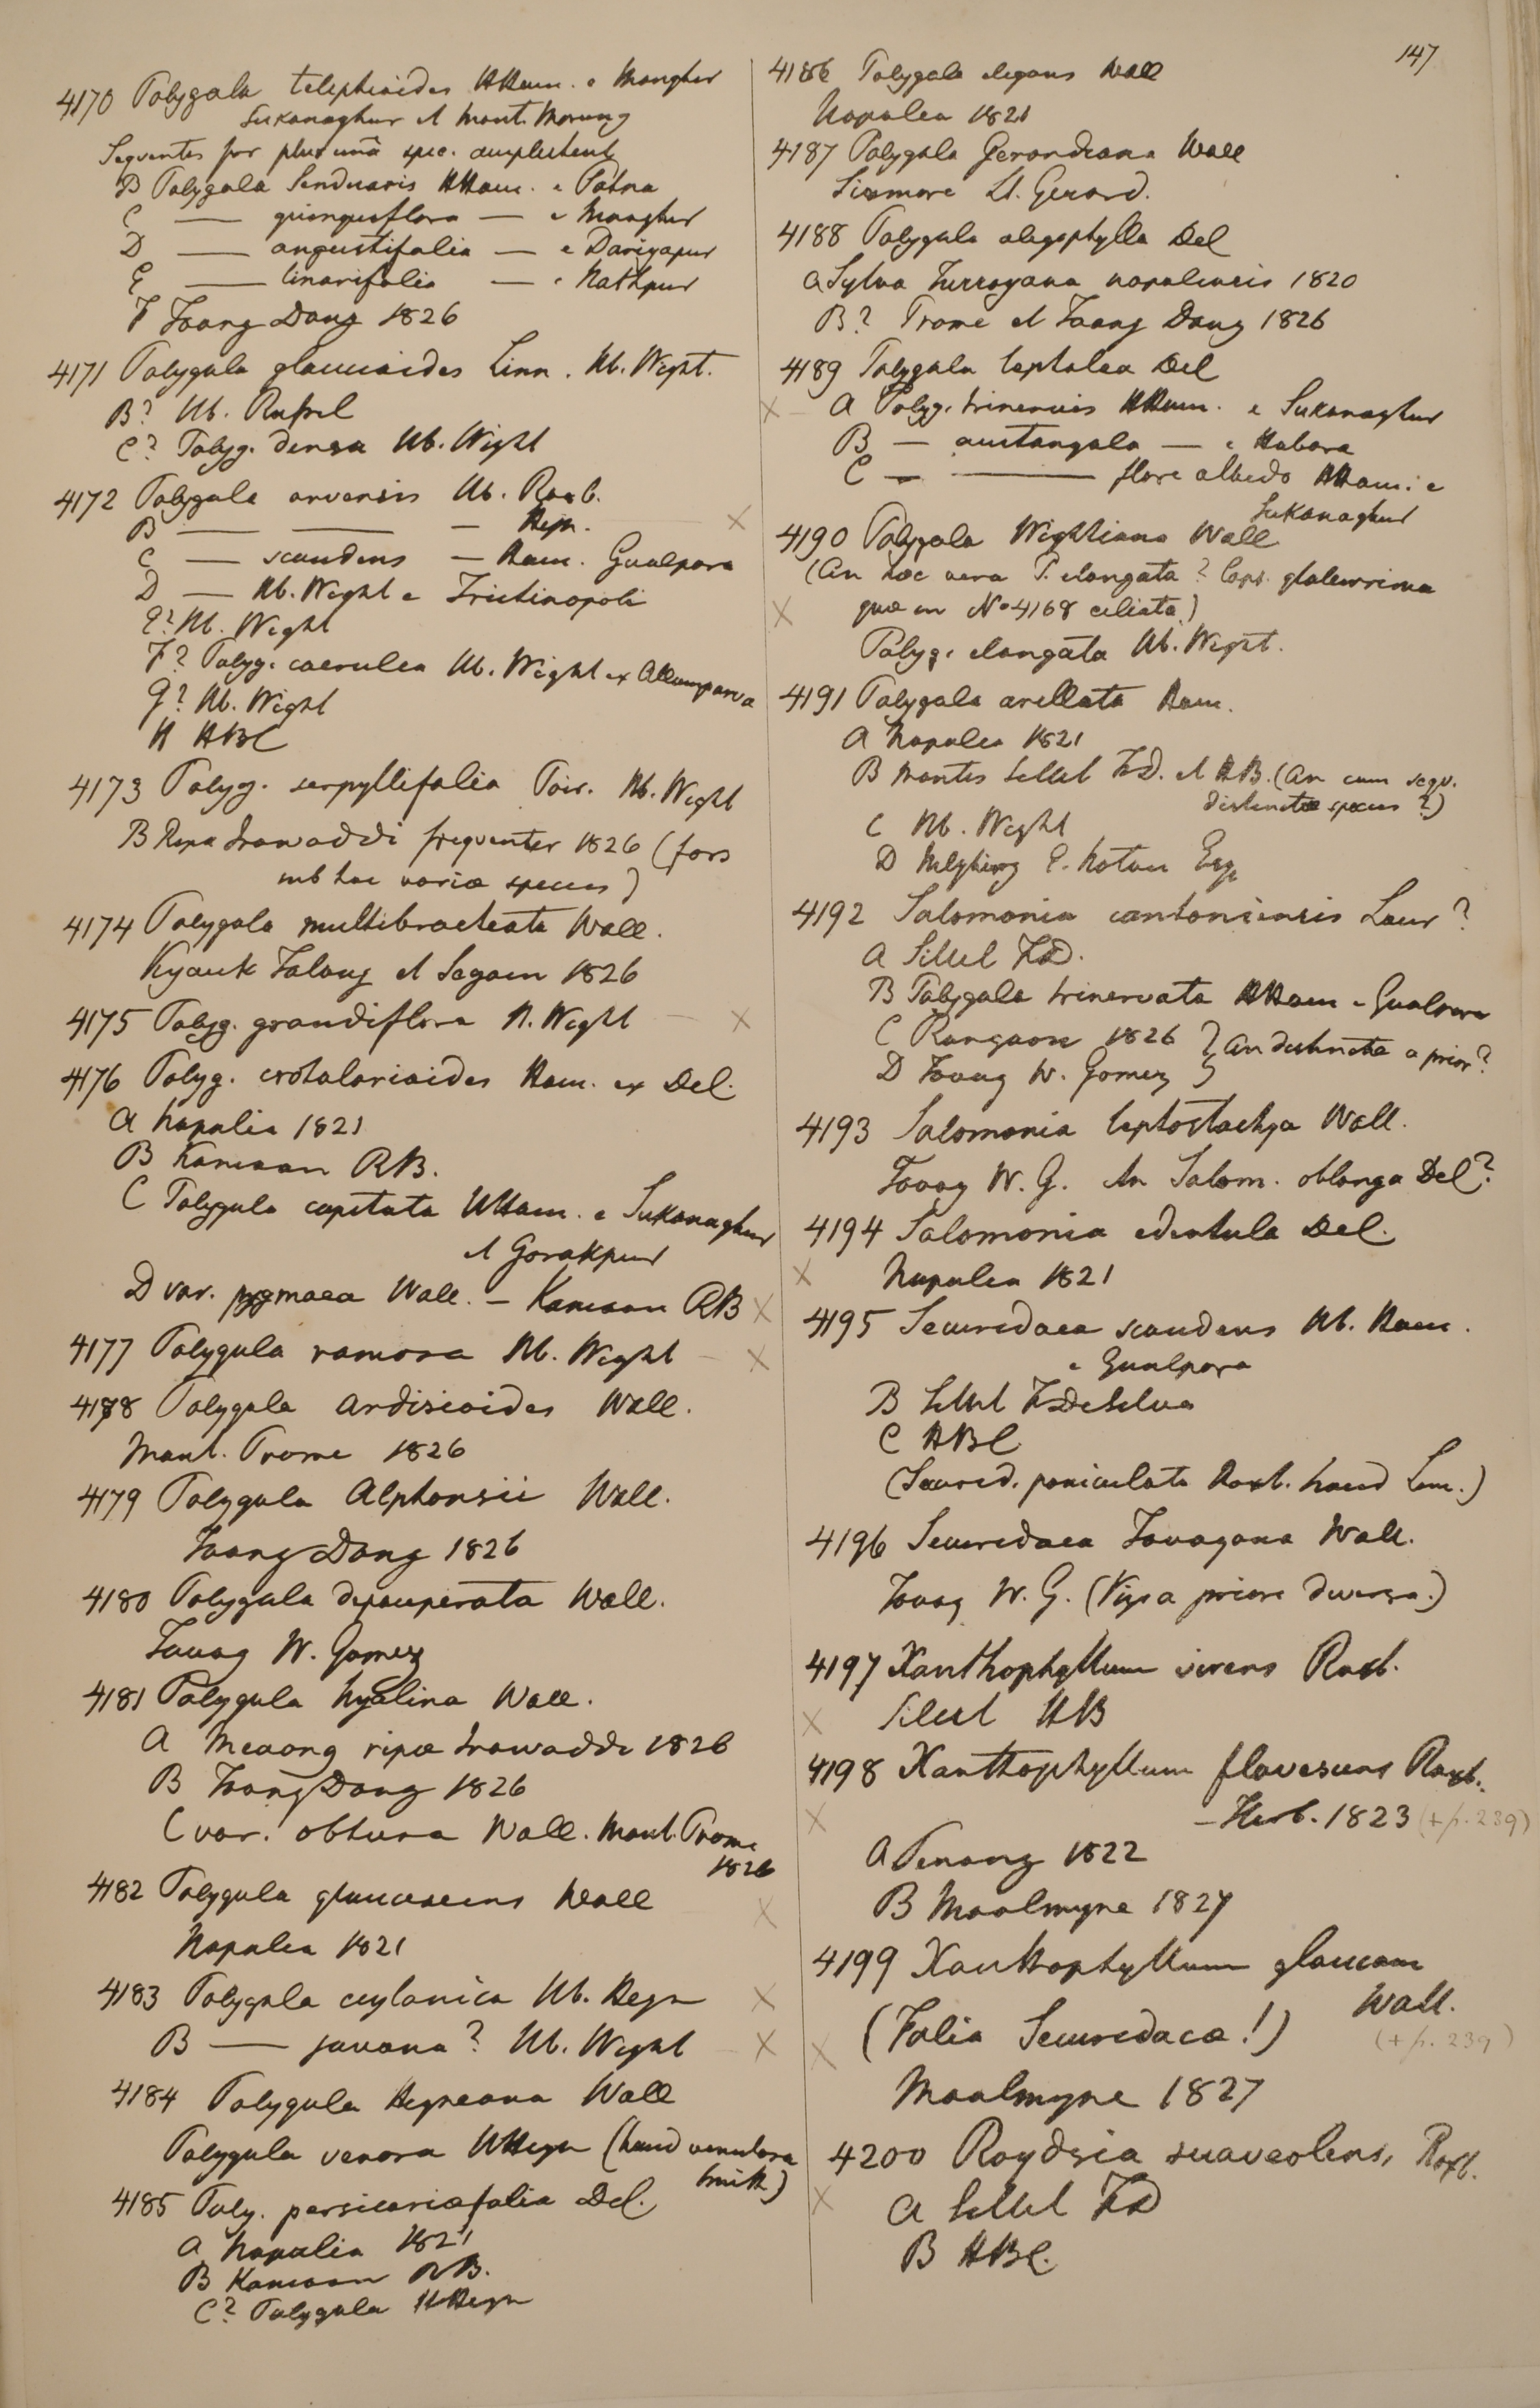 147
4170 Polygala telephioides HHam. e Mongher
Sukanaghur et Mont. Morung
Sequentes for plurimâ spec. amplectent
B Polygala linearis HHam. e Patna
C — quinqueflora — e Monghur
D — angustifolia — e Dariyapur
E — linarifolia — e Nathpur
F Taong Dong 1826
4171 Polygala glaucioides Linn. Hb. Wight.
B? Hb. Russel
C? Polyg. densa Hb. Wight
4172 Polygala arvensis Hb. Roxb.
B — — — Heyn.
C — scandens — Ham. Gualpara
D — Hb. Wight e Trichinopoli
E? Hb. Wight
F? Polyg. caerulea Hb. Wight ex Allamparva
G? Hb. Wight
H HBC
4173 Polyg. serpyllifolia Poir. Hb. Wight
B Ripa Irawaddi frequenter 1826 (fors
sub hac variæ species)
4174 Polygala multibracteata Wall.
Kyauk Talong et Segaen 1826
4175 Polyg. grandiflora H. Wight — X
4176 Polyg. crotalarioides Ham. ex Del.
A Napalia 1821
B Kamaon RB.
C Polygala capitata HHam. e Sukanaghur
et Gorakpur
D var. pygmaea Wall. — Kamaon RB X
4177 Polygala ramosa Hb. Wight — X
4178 Polygala ardisioides Wall.
Mont. Prome 1826
4179 Polygala Alphonsii Wall.
Taong Dong 1826
4180 Polygala depauperata Wall.
Tavoy W. Gomez
4181 Polygala hyalina Wall.
A Meaong ripæ Irawaddi 1826
B Taong Dong 1826
C var. obtusa Wall. Mont. Prome
1826
4182 Polygala glaucescens Wall X
Napalia 1821
4183 Polygala ceylanica Hb. Heyn X
B — javana? Hb. Wight X
4184 Polygala Heyneana Wall
Polygala venosa HHeyn (haud venulosa
Smith)
4185 Poly. persicariæfolia Del.
A Napalia 1821
B Kamaon RB.
C? Polygala HHeyn
4186 Polygala elegans Wall
Napalea 1821
4187 Polygala Gerardiana Wall
Sirmore Lt. Gerard.
4188 Polygala oligophylla Del
A Sylva Hurroyana napalensis 1820
B? Prome et Taong Dong 1826
4189 Polygala leptalea Del
X A Polyg. trinervis HHam. e Sukanaghur
B — — e Habora
C — — flore albedo HHam: e
Sukanaghur
4190 Polygala Wightiana Wall
(An hæc vera P. elongata? Caps. glaberrima
X quæ in No 4168 ciliata)
Polyg. elongata Hb. Wight.
4191 Polygala arillata Ham.
A Napalia 1821
B Montes Sillet FD. et HB. (An cum sequ.
distinctæ species?)
C Hb. Wight
D Nilghirry E. Noton Esq
4192 Salomonia cantoniensis Lour?
A Sillet FD.
B Polygala trinervata HHam e Gualpara
C Rangoon 1826 } An distincta a prior?
D Tavoy W. Gomez }
4193 Salomonia leptostachya Wall.
Tavoy W. G. An Salom. oblonga Del?
4194 Salomonia edentula Del.
X Napalea 1821
4195 Securidaca scandens Hb. Ham.
e Gualpara
B Sillet FDeSilva
C HBC
(Securid. paniculata Roxb. haud Lam.)
4196 Securidaca Tavoyana Wall.
Tavoy W. G. (Vix a priore diversa.)
4197 Xanthophyllum virens Roxb.
X Sillet HB
4198 Xanthophyllum flavescens Roxb.
X — Herb. 1823 (+ p. 239)
A Penang 1822
B Moalmyne 1827
4199 Xanthophyllum glaucum
Wall.
X (Folia Securidacæ!) (+ p. 239)
Moalmyne 1827
4200 Roydsia suaveolens, Roxb.
X A Sillet FD
B HBC.